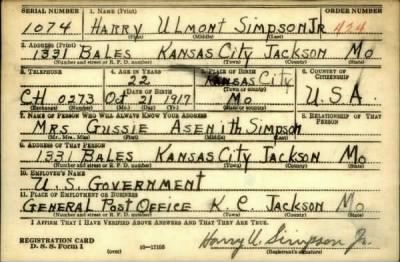 SERIAL NUMBER 1. NAME (Print) ORDER NUMBER
1074 HARRY ULMONT SIMPSON JR 474
(First) (Middle) (Last)
2. ADDRESS (Print)
1331 BALES KANSAS CITY JACKSON MO
(Number and street or R. F. D. number) (Town) (County) (State)
3. TELEPHONE 4. AGE IN YEARS 5. PLACE OF BIRTH 6. COUNTRY OF CITIZENSHIP
22 KANSAS CITY
DATE OF BIRTH (Town or county)
CH 0373 Oct 21 1917 MO U.S.A.
(Exchange) (Number) (Mo.) (Day) (Yr.) (State or country)
7. NAME OF PERSON WHO WILL ALWAYS KNOW YOUR ADDRESS 8. RELATIONSHIP OF THAT PERSON
MRS. GUSSIE ASENITH SIMPSON
(Mr., Mrs., Miss) (First) (Middle) (Last)
9. ADDRESS OF THAT PERSON
1331 BALES KANSAS CITY JACKSON MO
(Number and street or R. F. D. number) (Town) (County) (State)
10. EMPLOYER'S NAME
U.S. GOVERNMENT
11. PLACE OF EMPLOYMENT OR BUSINESS
GENERAL POST OFFICE K.C. JACKSON MO
(Number and street or R. F. D. number) (Town) (County) (State)
I AFFIRM THAT I HAVE VERIFIED ABOVE ANSWERS AND THAT THEY ARE TRUE.
REGISTRATION CARD
D. S. S. FORM 1 (over) 16-17105 Harry U. Simpson Jr.
(Registrant's signature)